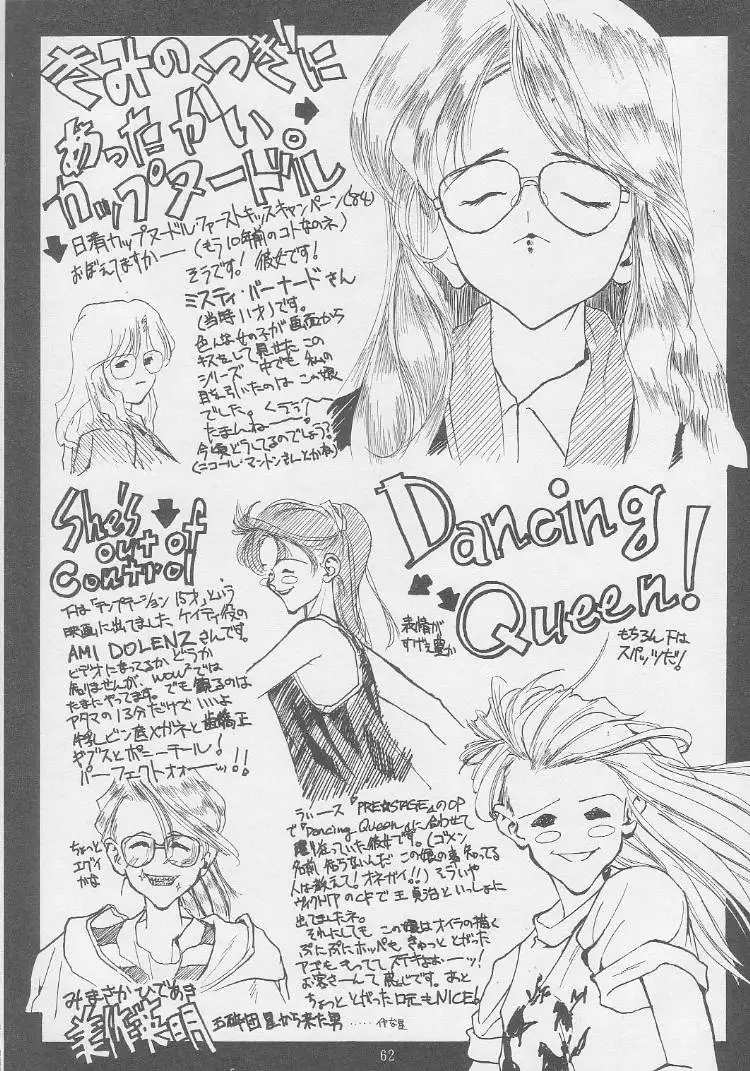 きみの、つぎに
あったかい。
カップヌードル
日清カップヌードル・ファーストキッスキャンペーン('84)
(もう10年前のコトなのネ)
おぼえてますかー
そうです! 彼女です!
ミスティ・バーナードさん
(当時11才)です。
色んな女の子が画面から
キスをして見せたこの
シリーズ 中でも私の
目を引いたのはこの娘
でした。くうぅ〜
たまんねーー
今頃どうしてるのでしょう?
(ニコール・マントンさんとかね)
Dancing
Queen!
表情が
すげぇ豊か
もちろん下は
スパッツだ!
She's
out of
Control
下は「テンプテーション15才」という
映画に出てました、ケイティ役の
AMI DOLENZさんです。
ビデオになってるかどうか
知りませんが、WOWOWでは
たまにやってます。でも観るのは
アタマの13分だけでいいよ
牛乳ビン底メガネと歯矯正
ギブスとポニーテール!
パーフェクトォォーーッ!!
ちょっと
エグイ
かな
うぃース『PRE☆STAGE』のOP
で「Dancing Queen」に合わせて
踊り狂っていた彼女です。(ゴメン
名前知らないんだ この娘の事知ってる
人は教えて!オネガイ!!)そういや
ヴィクトリアのCFで王貞治といっしょに
出てましたネ。
それにしても この娘はオイラの描く
ぷにぷにホッペも きゅっととがった
アゴももっててステキよぉーーッ!
お客さーんて感じです。あと
ちょっととがった口元もNICE!
みまさかひであき
美作英明
五碑田星から来た男
62